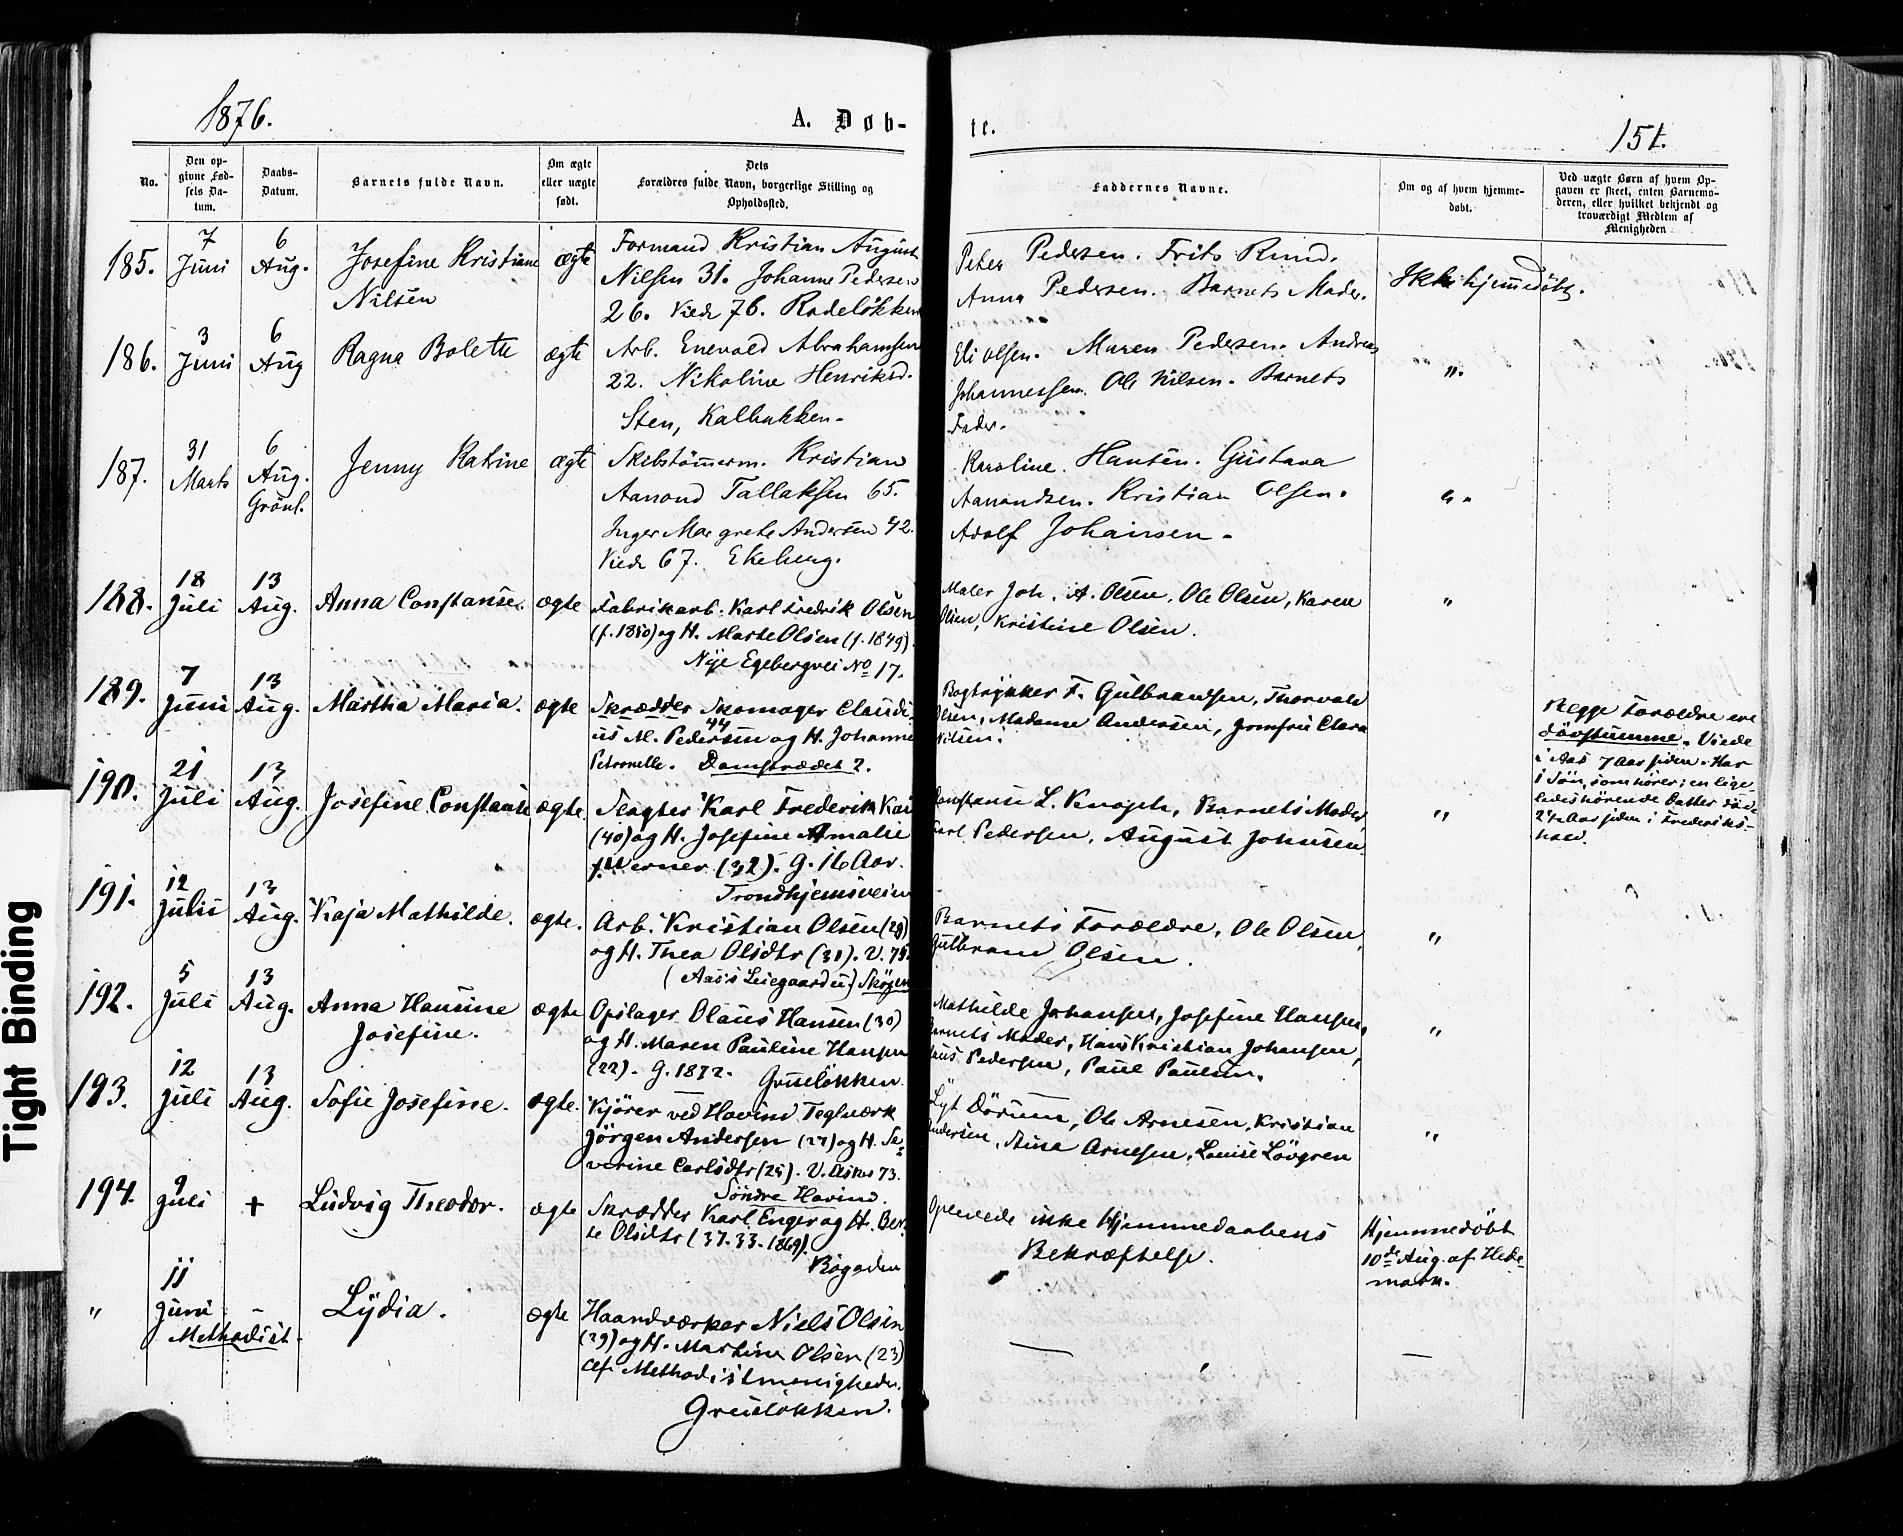 1876.
A. Døb-
te.
151.
No.
Den op-
givne Fød-
sels Da-
tum.
Daabs-
Datum.
Barnets fulde Navn.
Om ægte
eller uægte
født.
Dets
Forældres fulde Navn, borgerlige Stilling og
Opholdssted.
Faddernes Navne.
Om og af hvem hjemme-
døbt.
Ved uægte Børn af hvem Op-
gaven er skeet, enten Barnemo-
deren, eller hvilket bekjendt og
troværdigt Medlem af
Menigheden
185.
7
Juni
6
Aug.
Josefine Kristiane
Nilsen
ægte
Formand Kristian August
Nilsen 31. Johanne Pedersen
26. Viede 76. Rodeløkken
Peter Pedersen. Frits Rund.
Anna Pedersen. Barnets Moder.
Ikke hjemmedøbt.
186.
3
Juni
6
Aug
Ragna Bolette
ægte
Arb. Enevold Abrahamsen
22. Nikoline Henriksd.
Sten, Kalbakken.
Eli Olsen. Maren Pedersen. Andreas
Johannessen. Ole Nilsen. Barnets
Fader.
"
187.
31
Marts
6
Aug.
Grönl.
Jenny Katrine
ægte
Skibstömerm. Kristian
Aanond Tallaksen 65.
Inger Margrete Andersen 42.
Viede 67. Ekeberg.
Karoline Hansen. Gustava
Aanondsen. Kristian Olsen.
Adolf Johansen.
"
188.
18
Juli
13
Aug.
Anna Constanse.
ægte
Fabrikarb. Karl Fredrik Olsen
(f. 1850) og H. Marte Olsen (f. 1849)
Nye Egebergvei No 17.
Maler Joh. A. Olsen, Ole Olsen, Karen
Olsen, Kristine Olsen.
"
189.
7
Juni
13
Aug.
Martha Maria.
ægte
Skrædder Skomager Claudi-
us M. Pedersen 44 og H. Johanne
Petronelle. Damstrædet 2.
Bogtrykker F. Gulbransen, Thorvald
Olsen, Madame Andersen, Jomfru Clara
Nilsen.
Begge Forældre ere
døvstumme. Viede
i Aas 7 Aar siden. Har
1 Søn, som hører; en lige-
ledes hørende Datter døde
2½ Aar siden i Frederiks-
hald.
190.
21
Juli
13
Aug.
Josefine Constanse
ægte
Slagter Karl Frederik
(40) og H. Josefine Amalie
f. Werner (32). G. 16 Aar.
Trondhjemsveien
Constanse L. Knoph, Barnets Moder
Karl Pedersen, August Johnsen
"
191.
12
Juli
13
Aug.
Kaja Mathilde.
ægte.
Arb. Kristian Olsen (29)
og H. Thea Olsdtr (31). V. 75.
(Aas's Leiegaard) Skøyen
Barnets Forældre, Ole Olsen,
Gulbrand Olsen.
"
192.
5
Juli
13
Aug.
Anna Hansine
Josefine.
ægte
Opslager Olaus Hansen (30)
og H. Maren Pauline Hansen
(22). G. 1872. Grüneløkken.
Mathilde Johansen, Josefine Hansen,
Barnets Moder, Hans Kristian Johansen,
Pedersen, Paul Paulsen.
"
193.
12
Juli
13
Aug.
Sofie Josefine.
ægte.
Kjører ved Hovind Teglværk
Jörgen Andersen (27) og H. Se-
verine Carlsdtr (25). V. Asker 73.
Söndre Hovind.
Dörum, Ole Arnesen, Kristian
Andersen, Stina Arnesen, Louise Lövgren
"
194.
9
Juli
+
Ludvig Theodor.
ægte
Skrædder Karl Enger og H. Ber-
te Olsdtr (37. 33. 1869).
Bögaden
Oplevede ikke Hjemmedaabens
Bekræftelse.
Hjemmedöbt
10de Aug. af Hede-
mark.
"
11
Juni
-
Methodist.
Lydia.
ægte
Haandværker Niels Olsen
(29) og H. Martine Olsen (23)
af Methodistmenigheden.
Grüneløkken.
—
—
Tight Binding